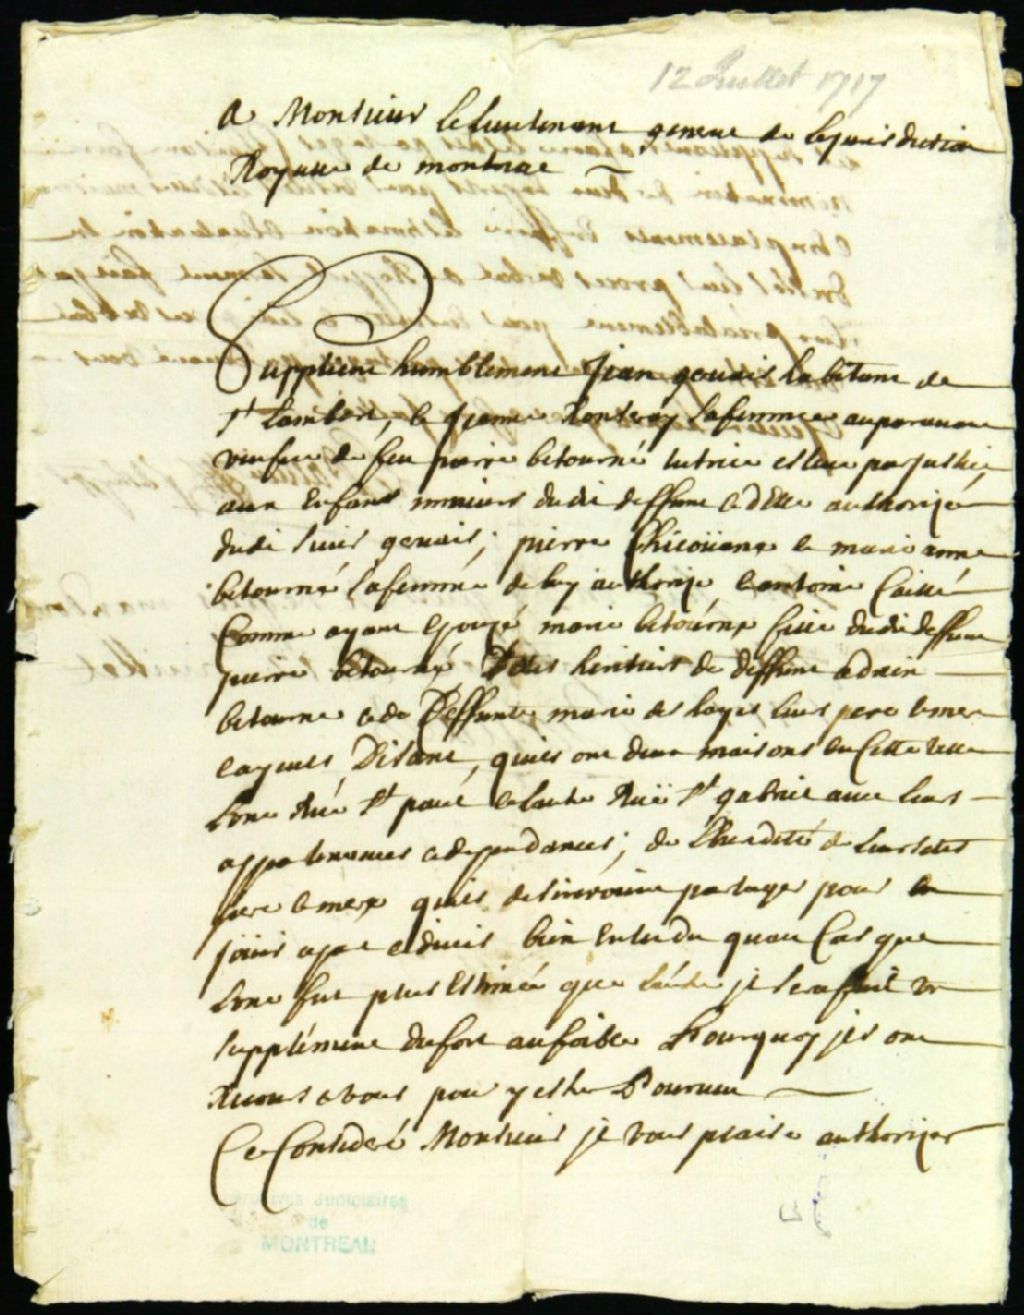 12 Juillet 1717
A Monsieur le lieutenant general de la jurisdiction
Royalle de montreal
Supplient humblement Jean geruais habitant de
St lambert, et Jeanne sa femme auparauant
veufue de feu pierre betourné tutrice eslue par justice
aux enfans mineurs dudit deffunt et d'elle authorizée
dudit sieur geruais; pierre Chicoüanne et marie anne
betourné sa femme de luy authorizé et antoine Caillé
Comme ayant epouzé marie betourné fille dudit deffunt
pierre betourné heritiers de deffunt adrien
betourné et de Deffunte marie des hayes leurs pere et mere
et ayeuls, Disant, quils ont deux maisons en Cette ville
l'une Rüe St paul et l'autre Rüe St gabriel auec leurs
appartenances et dependances; de l'heredité de leursdits
pere et mere quils desireroient partager pour en
jouir a part et diuis bien entendu quau Cas que
l'une fut plus estimée que l'autre il sera fait un
supplement du fort au foible Pourquoy ils ont
recours a vous pour y estre Pourueu
Ce Consideré Monsieur il vous plaise authorizer
Archives Judiciaires
de
MONTREAL